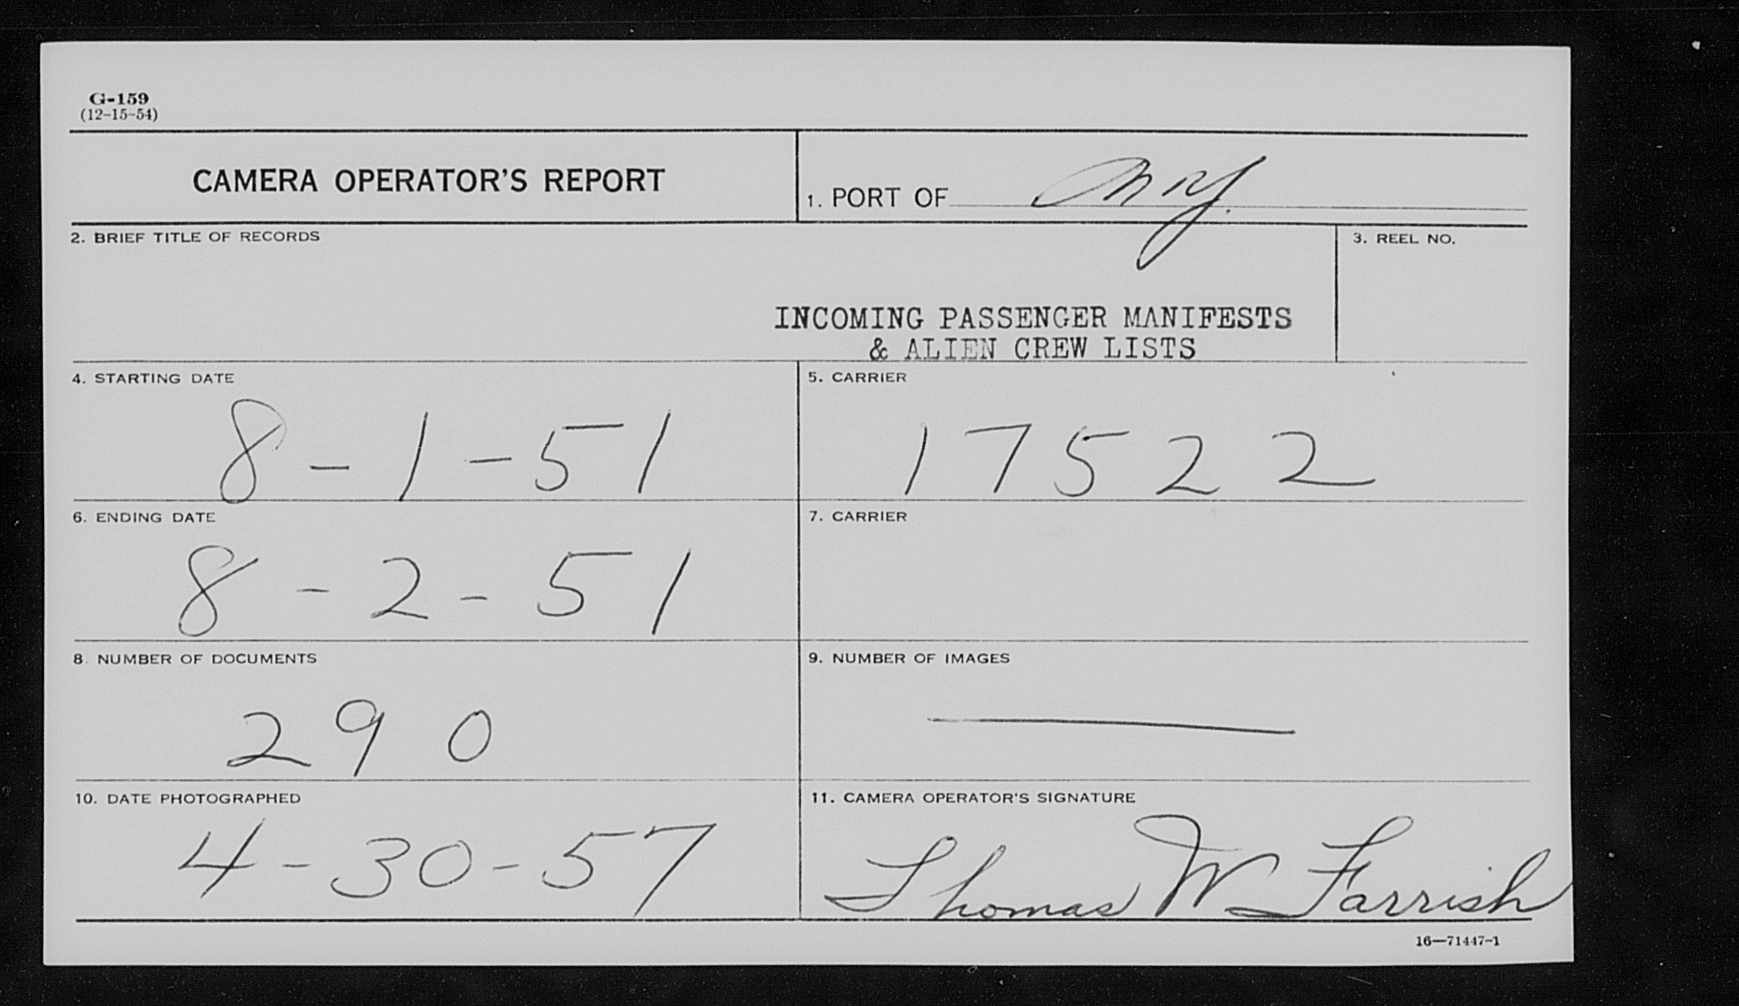 G-159
(12-15-54)
CAMERA OPERATOR'S REPORT
1. PORT OF N.Y.
2. BRIEF TITLE OF RECORDS
3. REEL NO.
INCOMING PASSENGER MANIFESTS
& ALIEN CREW LISTS
4. STARTING DATE
8-1-51
5. CARRIER
17522
6. ENDING DATE
8-2-51
7. CARRIER
8. NUMBER OF DOCUMENTS
290
9. NUMBER OF IMAGES
10. DATE PHOTOGRAPHED
4-30-57
11. CAMERA OPERATOR'S SIGNATURE
Thomas W Farrish
16—71447-1